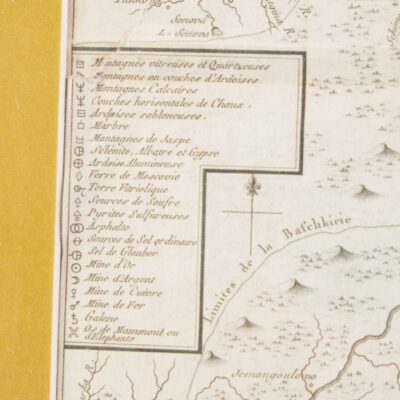 Sonova
L. Sonova
Montagnes vitreuses et Quartzeuses
Montagnes en couches d'Ardoises
Montagnes Calcaires
Couches horisontales de Chaux.
Ardoises sabloneuses.
Marbre
Montagnes de Jaspe
Selénite, Albatre et Gypse
Ardoise Alumineuse
Verre de Moscovie
Terre Vitriolique
Sources de Soufre
Pyrites Sulfureuses
Asphalte
Sources de Sel ordinaire
Sel de Glauber
Mine d'Or
Mine d'Argent
Mine de Cuivre
Mine de Fer
Galene
Os de Mammout ou
d'Elephants
Limites de la Baschkirie
Semangoulovo